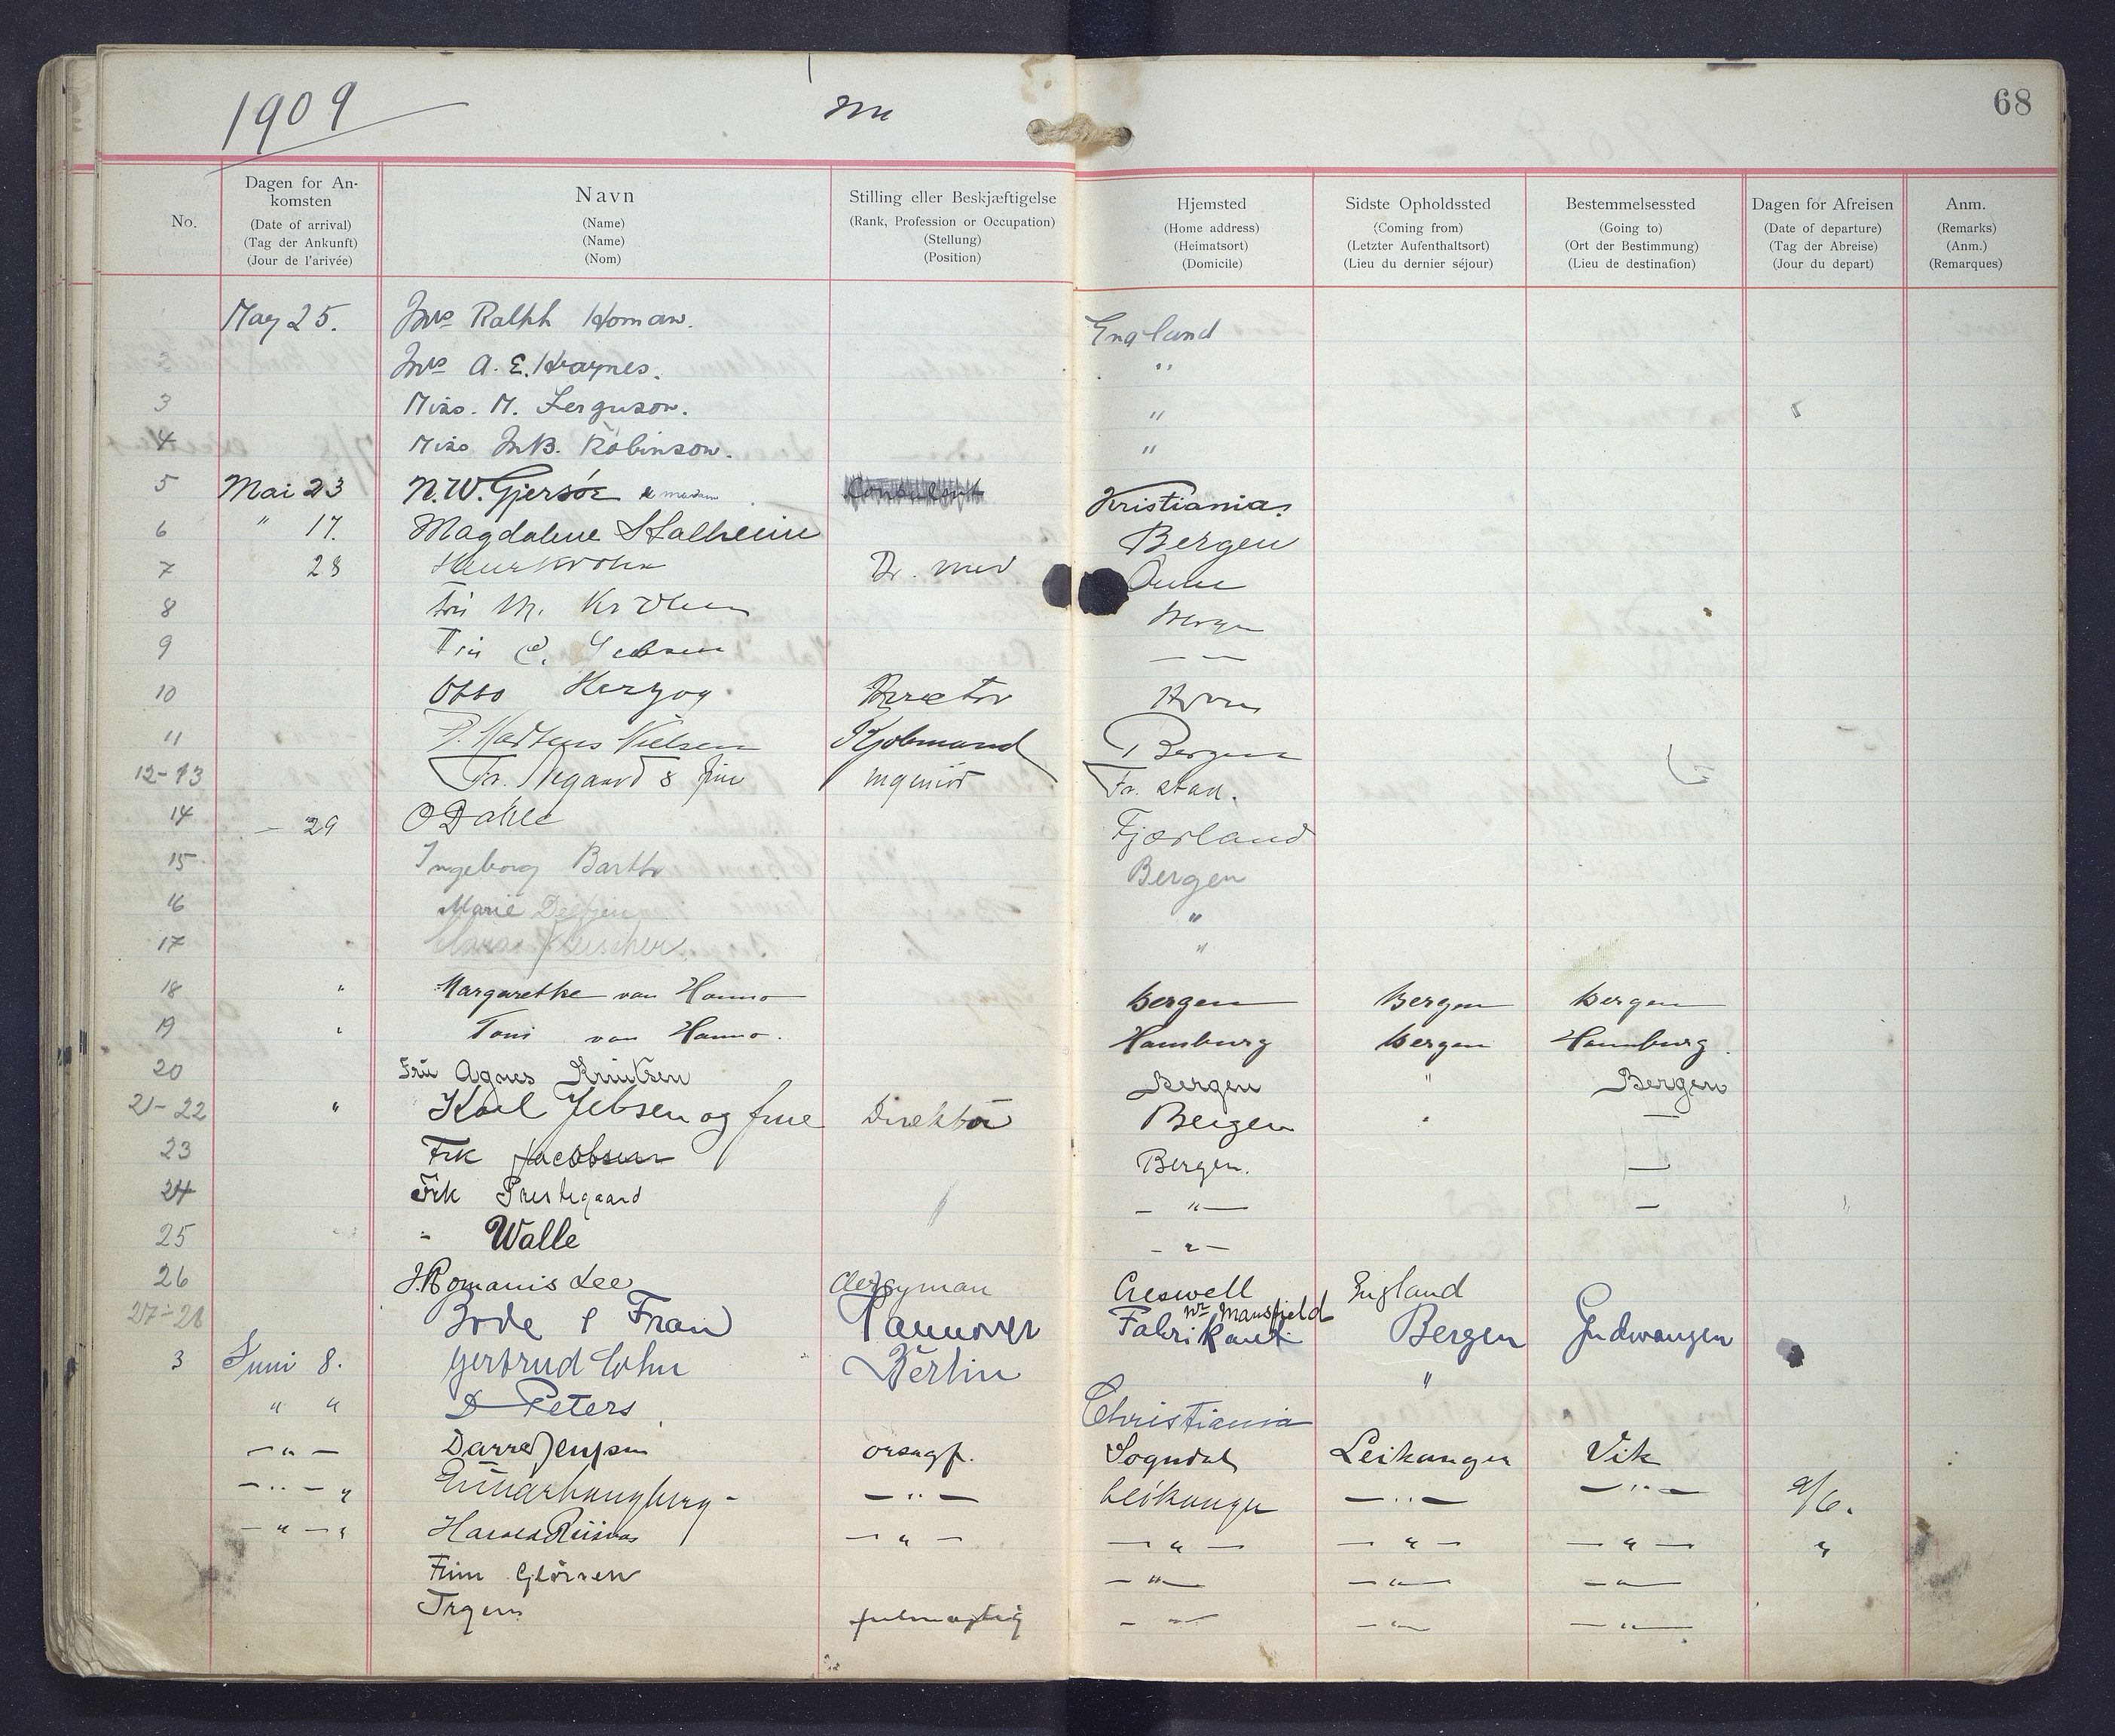 1909
68
No.
Dagen for An-
komsten
(Date of arrival)
(Tag der Ankunft)
(Jour de l'arivée)
Navn
(Name)
(Name)
(Nom)
Stilling eller Beskjæftigelse
(Rank, Profession or Occupation)
(Stellung)
(Position)
Hjemsted
(Home address)
(Heimatsort)
(Domicile)
Sidste Opholdssted
(Coming from)
(Letzter Aufenthaltsort)
(Lieu du dernier séjour)
Bestemmelsessted
(Going to)
(Ort der Bestimmung)
(Lieu de destination)
Dagen for Afreisen
(Date of departure)
(Tag der Abreise)
(Jour du depart)
Anm.
(Remarks)
(Anm.)
(Remarques)
May 25. Mrs Ralph Homan. England
2 Mrs A. E. Haynes. "
3 Miss. M. Ferguson. "
4 Miss M.B. Robinson. "
5 Mai 23 N.W. Gjersøe & madam Kristiania.
6 " 17. Magdalene Stalheim Bergen
7 28 Krohn Dr. med
8 Fru M. Krohn Bergen
9 Fru C. Jebsen — —
10 Otto Herzog Director
11 Martens Nielsen Kjøbmand Bergen
12-13 Fr. Aegaard & frue ingeniør Fr. stad.
14 — 29 O Dahle Fjærland
15 Ingeborg Barth Bergen
16 Marie "
17 Clara Fleischer "
18 " Margarethe von Hanno Bergen Bergen Bergen
19 " Toni von Hanno. Hamburg Bergen Hamburg.
20 Fru Agnes Knutsen Bergen " Bergen
21-22 " Karl Jebsen og frue Direktør Bergen " —
23 Frk Jacobsen Bergen. —
24 Frk Prestegaard — " — —
25 " Walle — " —
26 J. Romanis Lee Clergyman Creswell England
nr Mansfield
27-28 Bode & Frau Hannover Fabrikant Bergen Gudwangen
3 Juni 8. Gertrud Cohn Berlin "
" " D Peters Christiania
— " — Darre Jenssen orsagf. Sogndal Leikanger Vik
— " — " Einar Haugberg — " — Leikanger — " — — " — 9/6.
— " — " Harald Riisnæs — " — — " — — " — — " — "
Finn — " — — " — — " —
Trygve fuldmægtig — " — — " — — " —